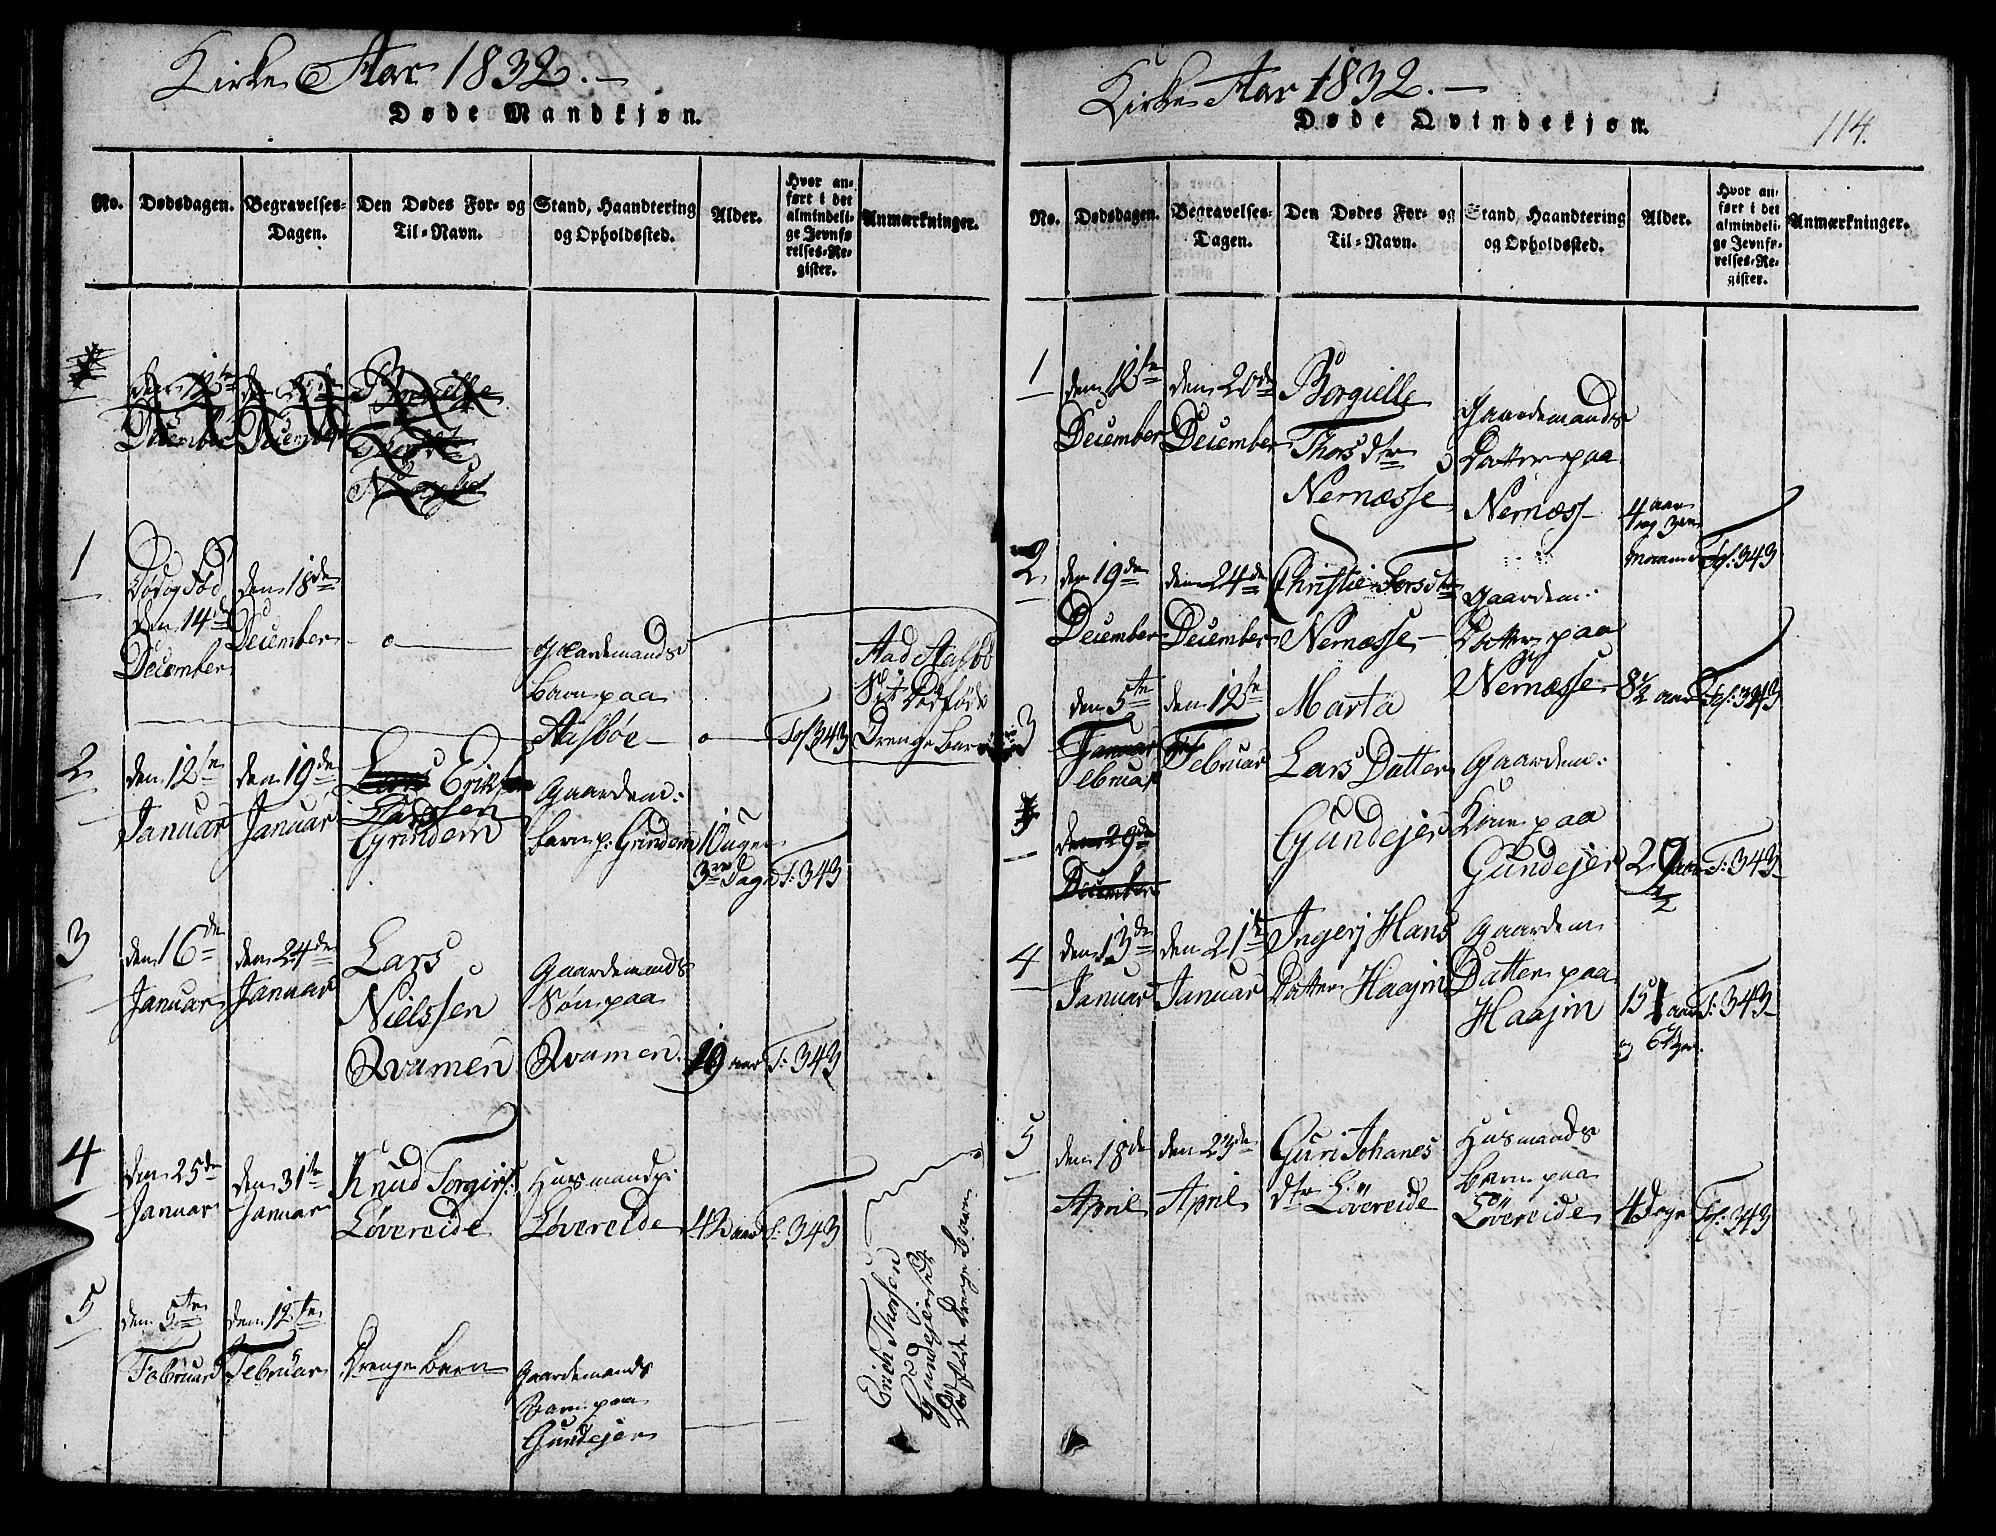 Kirke Aar 1832.
Døde Mandkjøn.
No.
Dødsdagen.
Begravelses-
Dagen.
Den Dødes For- og
Til-Navn.
Stand, Haandtering
og Opholdssted.
Alder.
Hvor an-
ført i det
almindeli-
ge Jevnfø-
relses-Re-
gister.
Anmærkninger.
December
December
1
Død og Fød
den 14de
December
den 18de
December
Gaardemands
barn paa
Aasbøe
Fol 343
Aad Aasbö
et Dødföd
Drenge Barn
2
den 12te
Januar
den 19de
Januar
Lars Erik
Larssen
Grindem
Gaardem:
barn p: Grindem
10 uger
3 Dage
F: 343
3
den 16de
Januar
den 24de
Januar
Lars
Nielssen
Qvamen
Gaardemands
Søn paa
Qvamen
19 aar
F: 343
4
den 25de
Januar
den 31te
Januar
Knud Torgirs:
Løvereide
Husmand p:
Løvereide
42 aar
F: 343
5
den 5te
Februar
den 12te
Februar
Drenge barn
Gaardemands
Barn paa
Gundejer
Erich Thorsen
Gundejers
Dödföde Drenge Barn
Kirke Aar 1832.
Døde Qvindekjøn.
114.
No.
Dødsdagen.
Begravelses-
Dagen.
Den Dødes For- og
Til-Navn.
Stand, Haandtering
og Opholdssted.
Alder.
Hvor an-
ført i det
almindeli-
ge Jevnfø-
relses-Re-
gister.
Anmærkninger.
1
den 12te
December
den 20de
December
Borgielle
Thorsdtr
Nernæsse
Gaardemands
Datter paa
Nernæss
4 aar
og 3
F: 343
2
den 19de
December
den 24de
December
Christie Torsdtr
Nernæsse
Gaardem:
Datter paa
Nernæsse
8½ aar
Fol: 343
3
den 5te
Januar
Februar
den 12te
Februar
Marta
Lars Datter
Gundejer
Gaardem:
Kone paa
Gundejer
29 aar
½
F: 343
den 29de
December
4
den 13de
Januar
den 21te
Januar
Ingerj Hans
Datter Haajm
Gaardem
Datter paa
Haajm
15 aar
F: 343
5
den 18de
April
den 23de
April
Guri Johanes
dtr Lövereide
Husmands
barn paa
Lövereide
4 Dage
Fol: 343